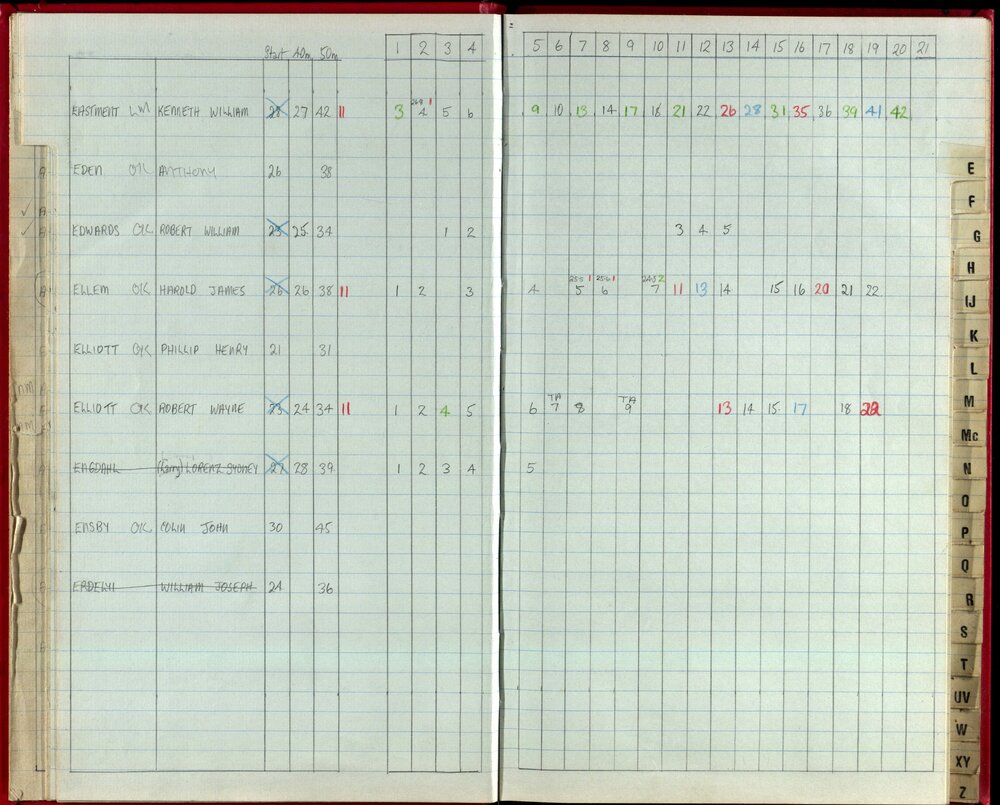 Start 40m 50m 1 2 3 4 5 6 7 8 9 10 11 12 13 14 15 16 17 18 19 20 21
EASTMENT LWM KENNETH WILLIAM 28 27 42 11 3 4 5 6 9 10 13 14 17 18 21 22 26 28 31 35 36 39 41 42
EDEN OK ANTHONY 26 38
EDWARDS OK ROBERT WILLIAM 23 25 34 1 2 3 4 5
25·5 1 25·6 1 24·5 2
ELLEM OK HAROLD JAMES 26 26 38 11 1 2 3 4 5 6 7 11 13 14 15 16 20 21 22
ELLIOTT OK PHILLIP HENRY 21 31
TA TA
ELLIOTT OK ROBERT WAYNE 23 24 34 11 1 2 4 5 6 7 8 9 13 14 15 17 18 22
ENGDAHL (Larry) LORENZ SYDNEY 27 28 39 1 2 3 4 5
ENSBY OK COLIN JOHN 30 45
ERDELYI WILLIAM JOSEPH 24 36
E
F
G
H
IJ
K
L
M
Mc
N
O
P
Q
R
S
T
UV
W
XY
Z